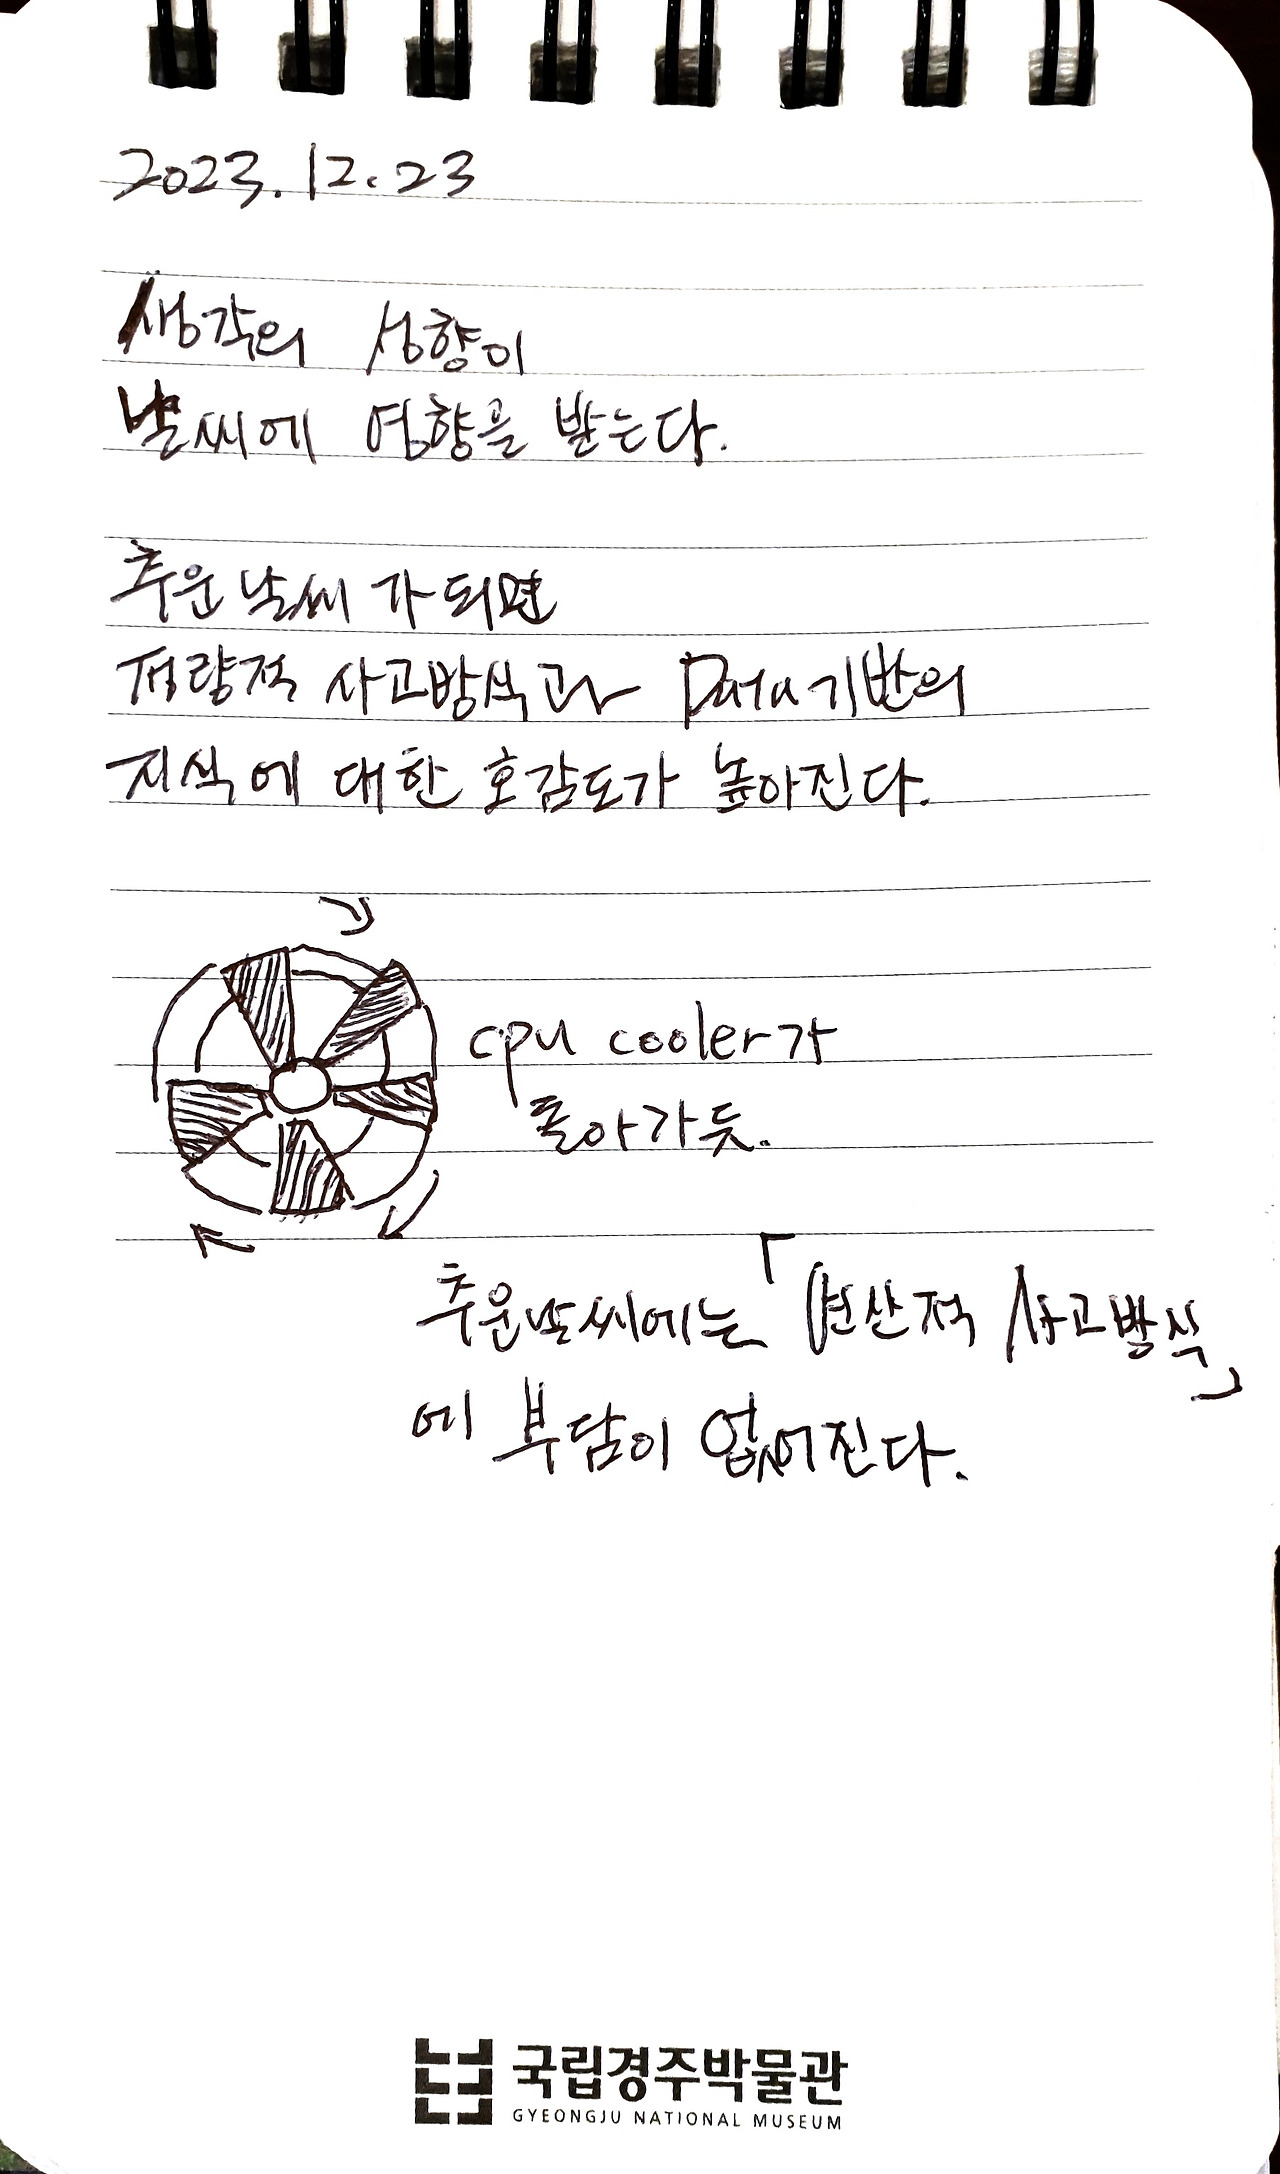 2023.12.23
생각의 성향이
날씨에 영향을 받는다.
추운날씨가 되면
정량적 사고방식과 Data기반의
지식에 대한 호감도가 높아진다.
cpu cooler가
돌아가듯.
추운날씨에는 「연산적 사고방식」
에 부담이 없어진다.
국립경주박물관
GYEONGJU NATIONAL MUSEUM